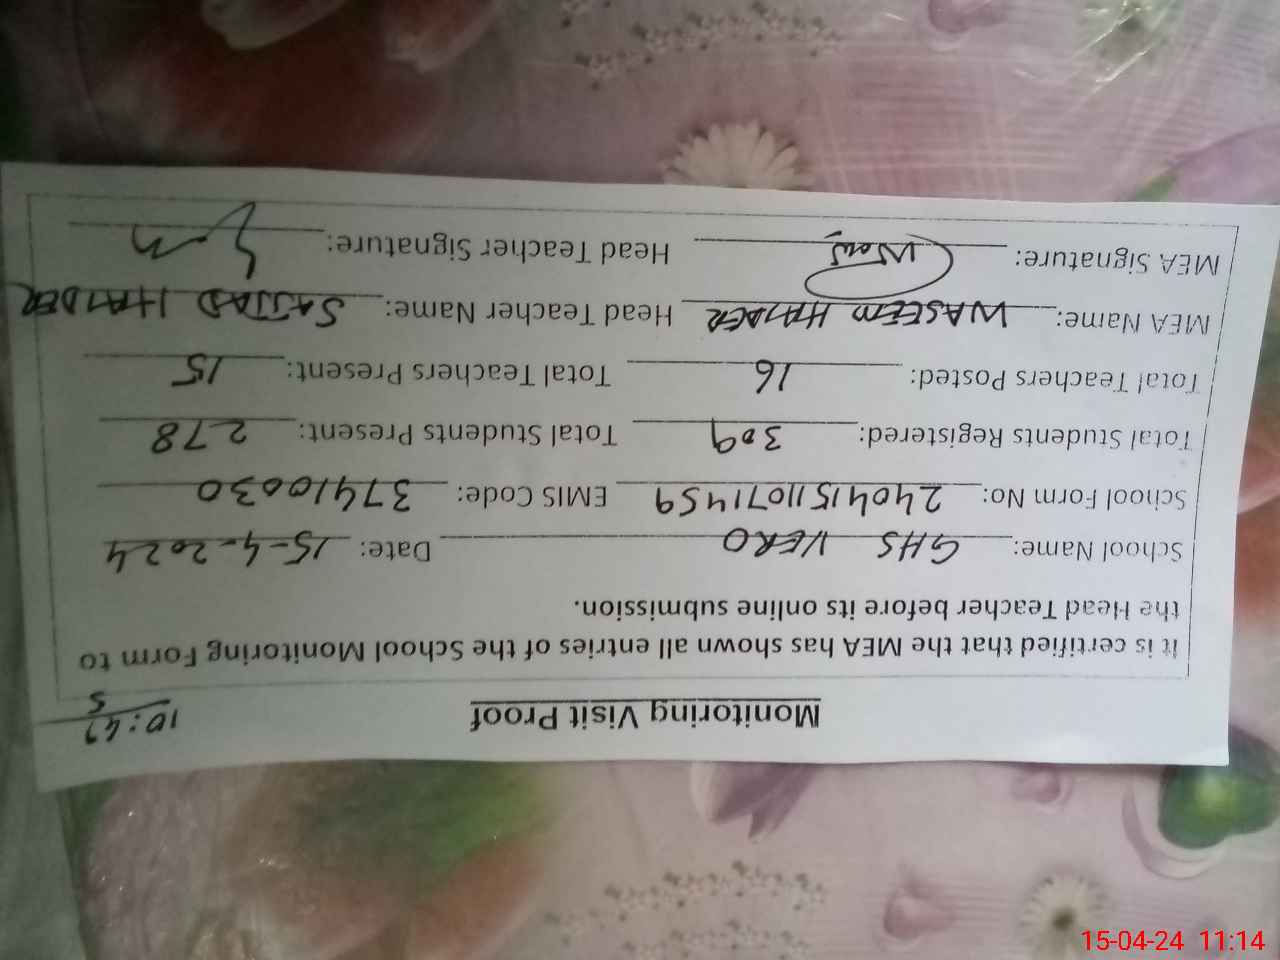 Monitoring Visit Proof
10:47
5
It is certified that the MEA has shown all entries of the School Monitoring Form to
the Head Teacher before its online submission.
School Name: GHS VERO Date: 15-4-2024
School Form No: 24041511071459 EMIS Code: 37410030
Total Students Registered: 309 Total Students Present: 278
Total Teachers Posted: 16 Total Teachers Present: 15
MEA Name: WASEEM HAIDER Head Teacher Name: SAJJAD HAIDER
MEA Signature: Head Teacher Signature:
15-04-24 11:14